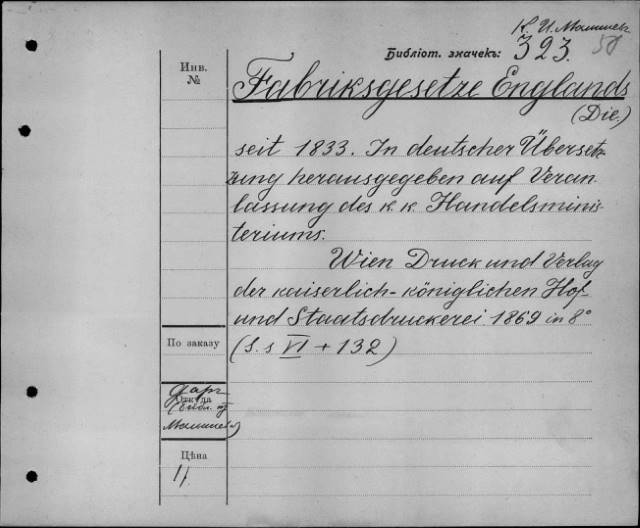 К. И. Малышев
Библіот. значекъ: 323. 58
Инв.
№
Fabriksgesetze Englands
(Die.)
seit 1833. In deutscher Überset-
zung herausgegeben auf Veran-
lassung des k. k. Handelsminis-
teriums.
Wien Druck und Verlag
der kaiserlich-königlichen Hof-
und Staatsdruckerei 1869 in 8°
(S. s VI + 132)
По заказу
Откуда
даръ
Библ.
Малышев
Цѣна